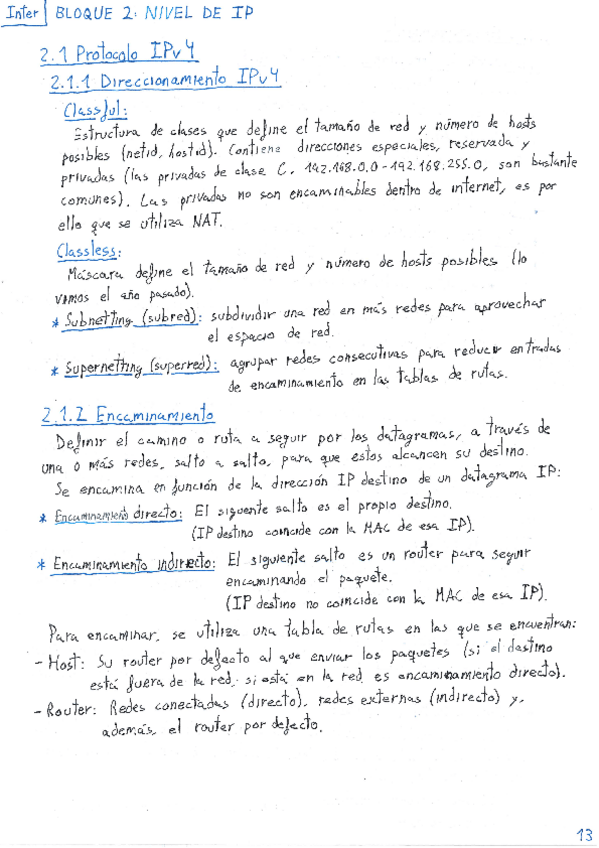 Inter BLOQUE 2: NIVEL DE IP
2.1 Protocolo IPv4
2.1.1 Direccionamiento IPv4
Classful:
Estructura de clases que define el tamaño de red y número de hosts
posibles (netid, hostid). Contiene direcciones especiales, reservada y
privadas (las privadas de clase C, 192.168.0.0-192.168.255.0, son bastante
comunes). Las privadas no son encaminables dentro de internet, es por
ello que se utiliza NAT.
Classless:
Máscara define el tamaño de red y número de hosts posibles (lo
vimos el año pasado).
* Subnetting (subred): subdividir una red en más redes para aprovechar
el espacio de red.
* Supernetting (superred): agrupar redes consecutivas para reducir entradas
de encaminamiento en las tablas de rutas.
2.1.2 Encaminamiento
Definir el camino o ruta a seguir por los datagramas, a través de
una o más redes, salto a salto, para que estos alcancen su destino.
Se encamina en función de la dirección IP destino de un datagrama IP:
* Encaminamiento directo: El siguente salto es el propio destino.
(IP destino coincide con la MAC de esa IP).
* Encaminamiento indirecto: El siguiente salto es un router para seguir
encaminando el paquete.
(IP destino no coincide con la MAC de esa IP).
Para encaminar, se utiliza una tabla de rutas en las que se encuentran:
- Host: Su router por defecto al que enviar los paquetes (si el destino
está fuera de la red, si está en la red es encaminamiento directo).
- Router: Redes conectadas (directo), redes externas (indirecto) y,
además, el router por defecto.
13